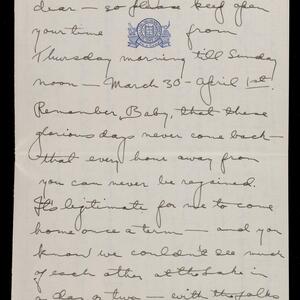 dear — so please keep open
your time from
Thursday morning till Sunday
noon — March 30 – April 1st.
Remember, Baby, that these
glorious days never come back —
that every hour away from
you can never be regained.
It's legitimate for me to come
home once a term — and you
know we couldn't see much
of each other at the Lake in
a day or two — with the folks